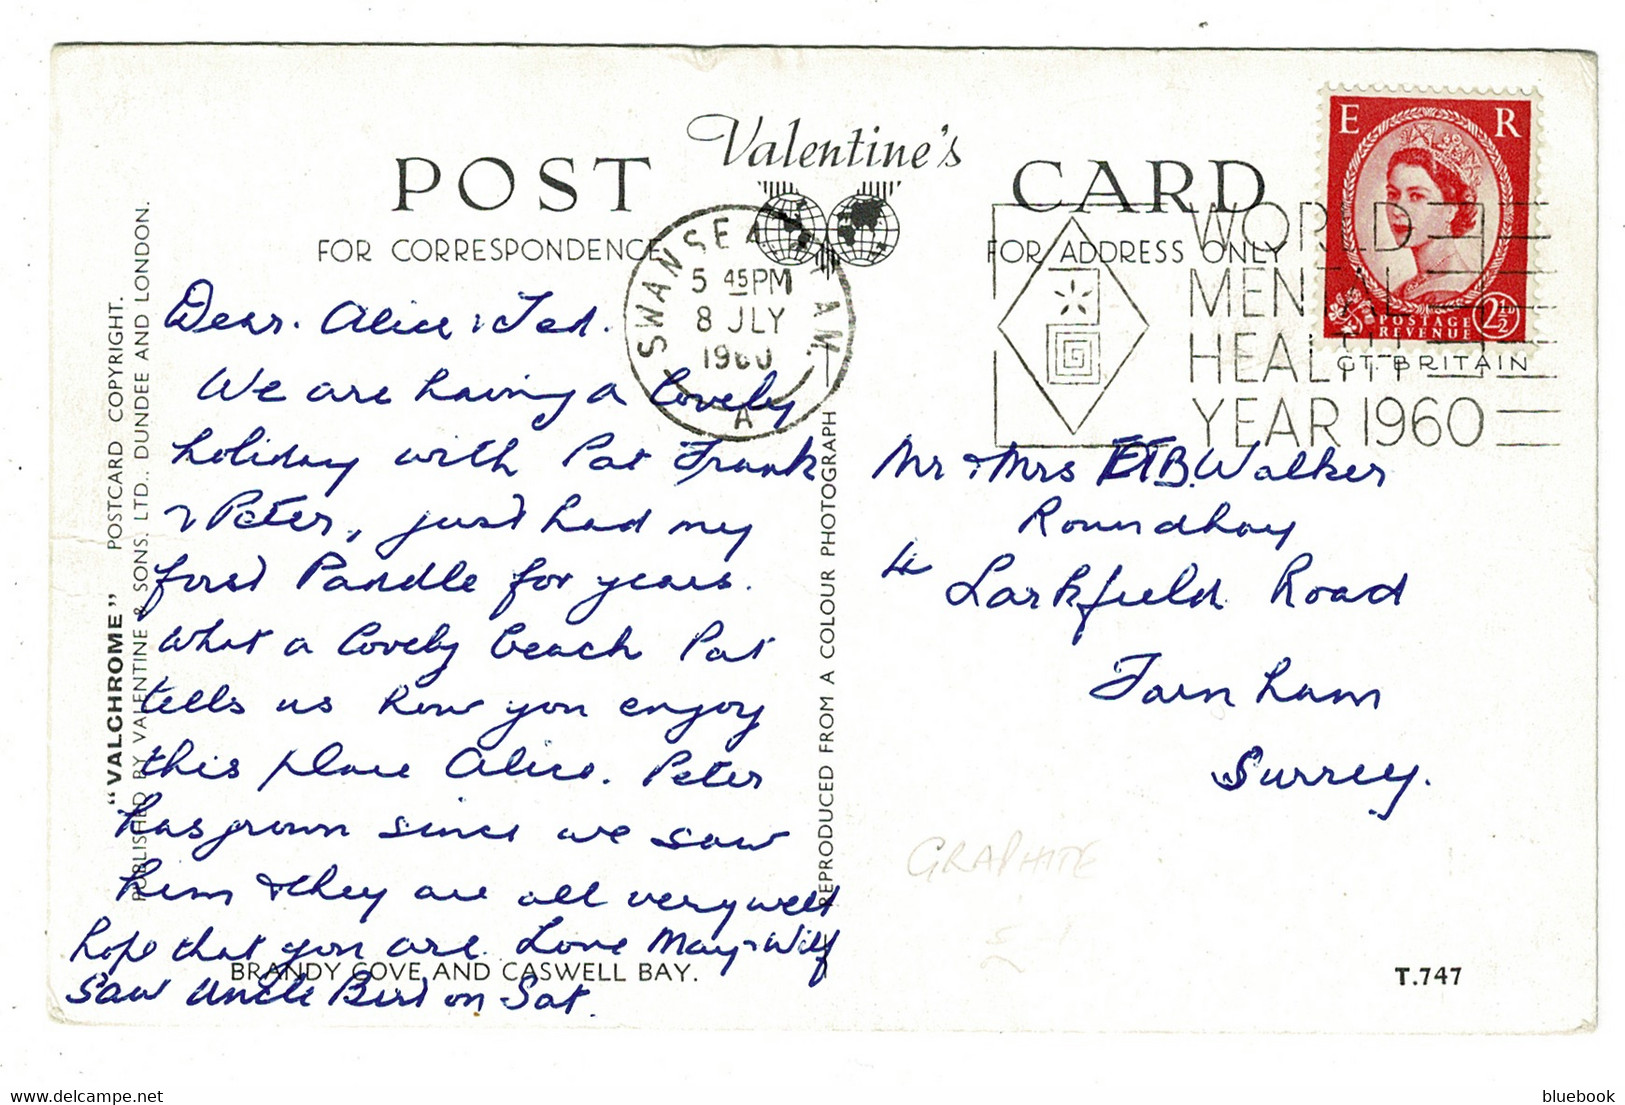 Valentine's
POST CARD
FOR CORRESPONDENCE
FOR ADDRESS ONLY
E R
POSTAGE REVENUE 2½D
GT. BRITAIN
SWANSEA
5 45 PM
8 JLY
1960
A
WORLD
MENTAL
HEALTH
YEAR 1960
Dear. Alice & Ted.
We are having a lovely
holiday with Pat Frank
& Peter, just had my
first Paddle for years.
What a lovely beach Pat
tells us how you enjoy
this place Alice. Peter
has grown since we saw
him & they are all very well
hope that you are. Love May & Wilf
Saw Uncle Bert on Sat.
Mr & Mrs E T B. Walker
Roundhay
4 Larkfield Road
Farnham
Surrey.
GRAPHITE
"VALCHROME" POSTCARD COPYRIGHT.
PUBLISHED BY VALENTINE & SONS, LTD., DUNDEE AND LONDON.
REPRODUCED FROM A COLOUR PHOTOGRAPH
BRANDY COVE AND CASWELL BAY.
T.747
www.delcampe.net
bluebook